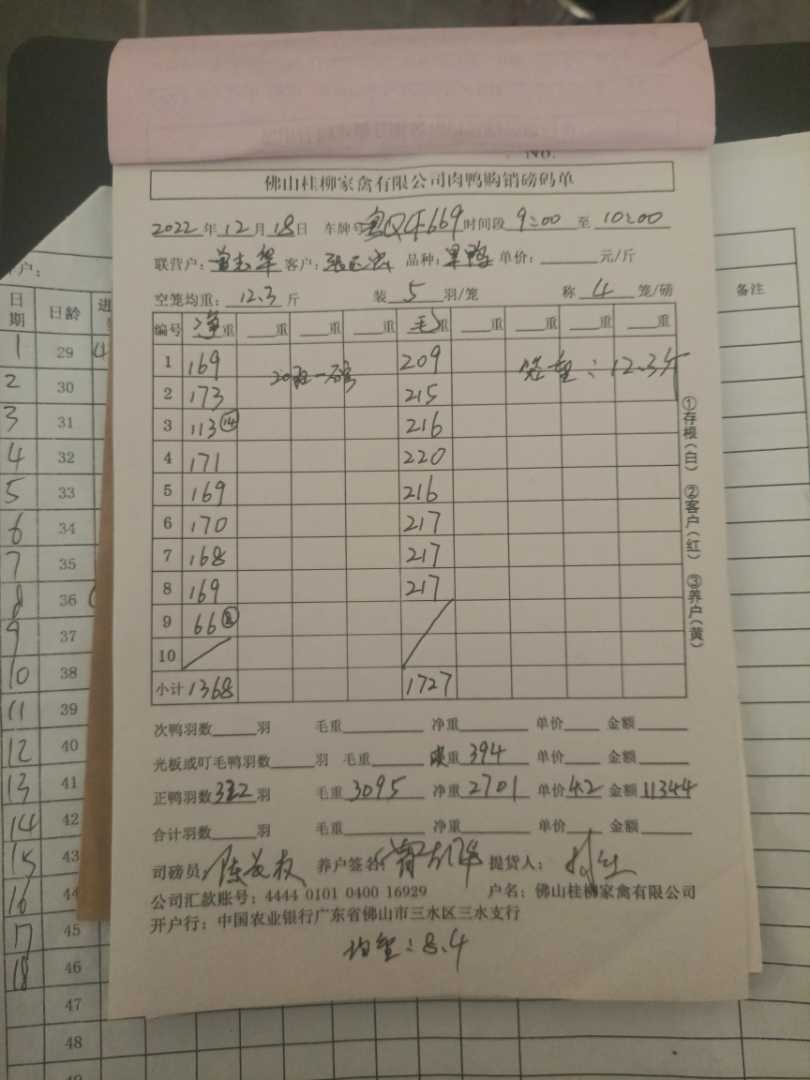 No.
佛山桂柳家禽有限公司肉鸭购销磅码单
2022年12月18日 车牌号 时间段 9:00 至 10:00
联营户: 客户: 品种: 单价: 元/斤
空笼均重: 12.3 斤 装 5 羽/笼 称 4 笼/磅
编号 净重 重 重 重 毛重 重 重 重 重
1 169 209 12.3斤
2 173 215
3 113 ⑭ 216
4 171 220
5 169 216
6 170 217
7 168 217
8 169 217
9 66 ⑧
10
小计 1368 1727
①存根(白) ②客户(红) ③养户(黄)
次鸭羽数 羽 毛重 净重 单价 金额
光板或叮毛鸭羽数 羽 毛重 重 394
正鸭羽数 322 羽 毛重 3095 净重 2701 单价 4.2 金额 11344
合计羽数 羽 毛重 净重 单价 金额
司磅员: 养户签名: 提货人:
公司汇款账号: 4444 0101 0400 16929 户名: 佛山桂柳家禽有限公司
开户行: 中国农业银行广东省佛山市三水区三水支行
均重: 8.4
户:
日期 日龄 进 备注
1 29
2 30
3 31
4 32
5 33
6 34
7 35
8 36
9 37
10 38
11 39
12 40
13 41
14 42
15 43
16 44
17 45
18 46
47
48
49